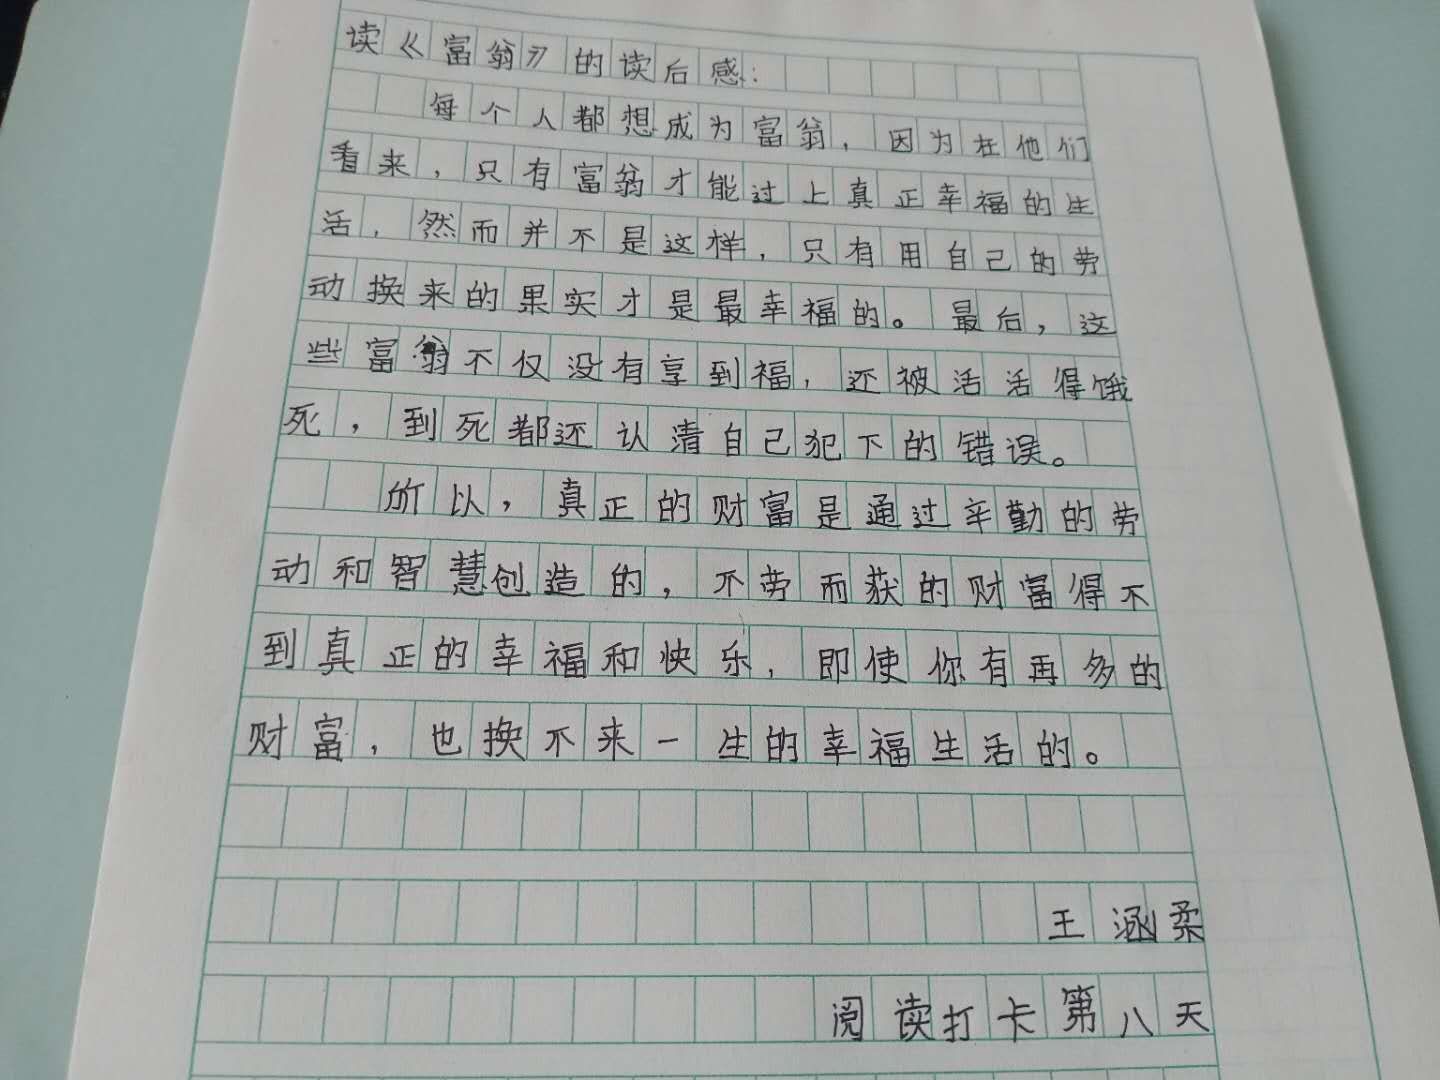 读《富翁》的读后感：
每个人都想成为富翁，因为在他们
看来，只有富翁才能过上真正幸福的生
活，然而并不是这样，只有用自己的劳
动换来的果实才是最幸福的。最后，这
些富翁不仅没有享到福，还被活活得饿
死，到死都还认清自己犯下的错误。
所以，真正的财富是通过辛勤的劳
动和智慧创造的，不劳而获的财富得不
到真正的幸福和快乐，即使你有再多的
财富，也换不来一生的幸福生活的。
王涵柔
阅读打卡第八天